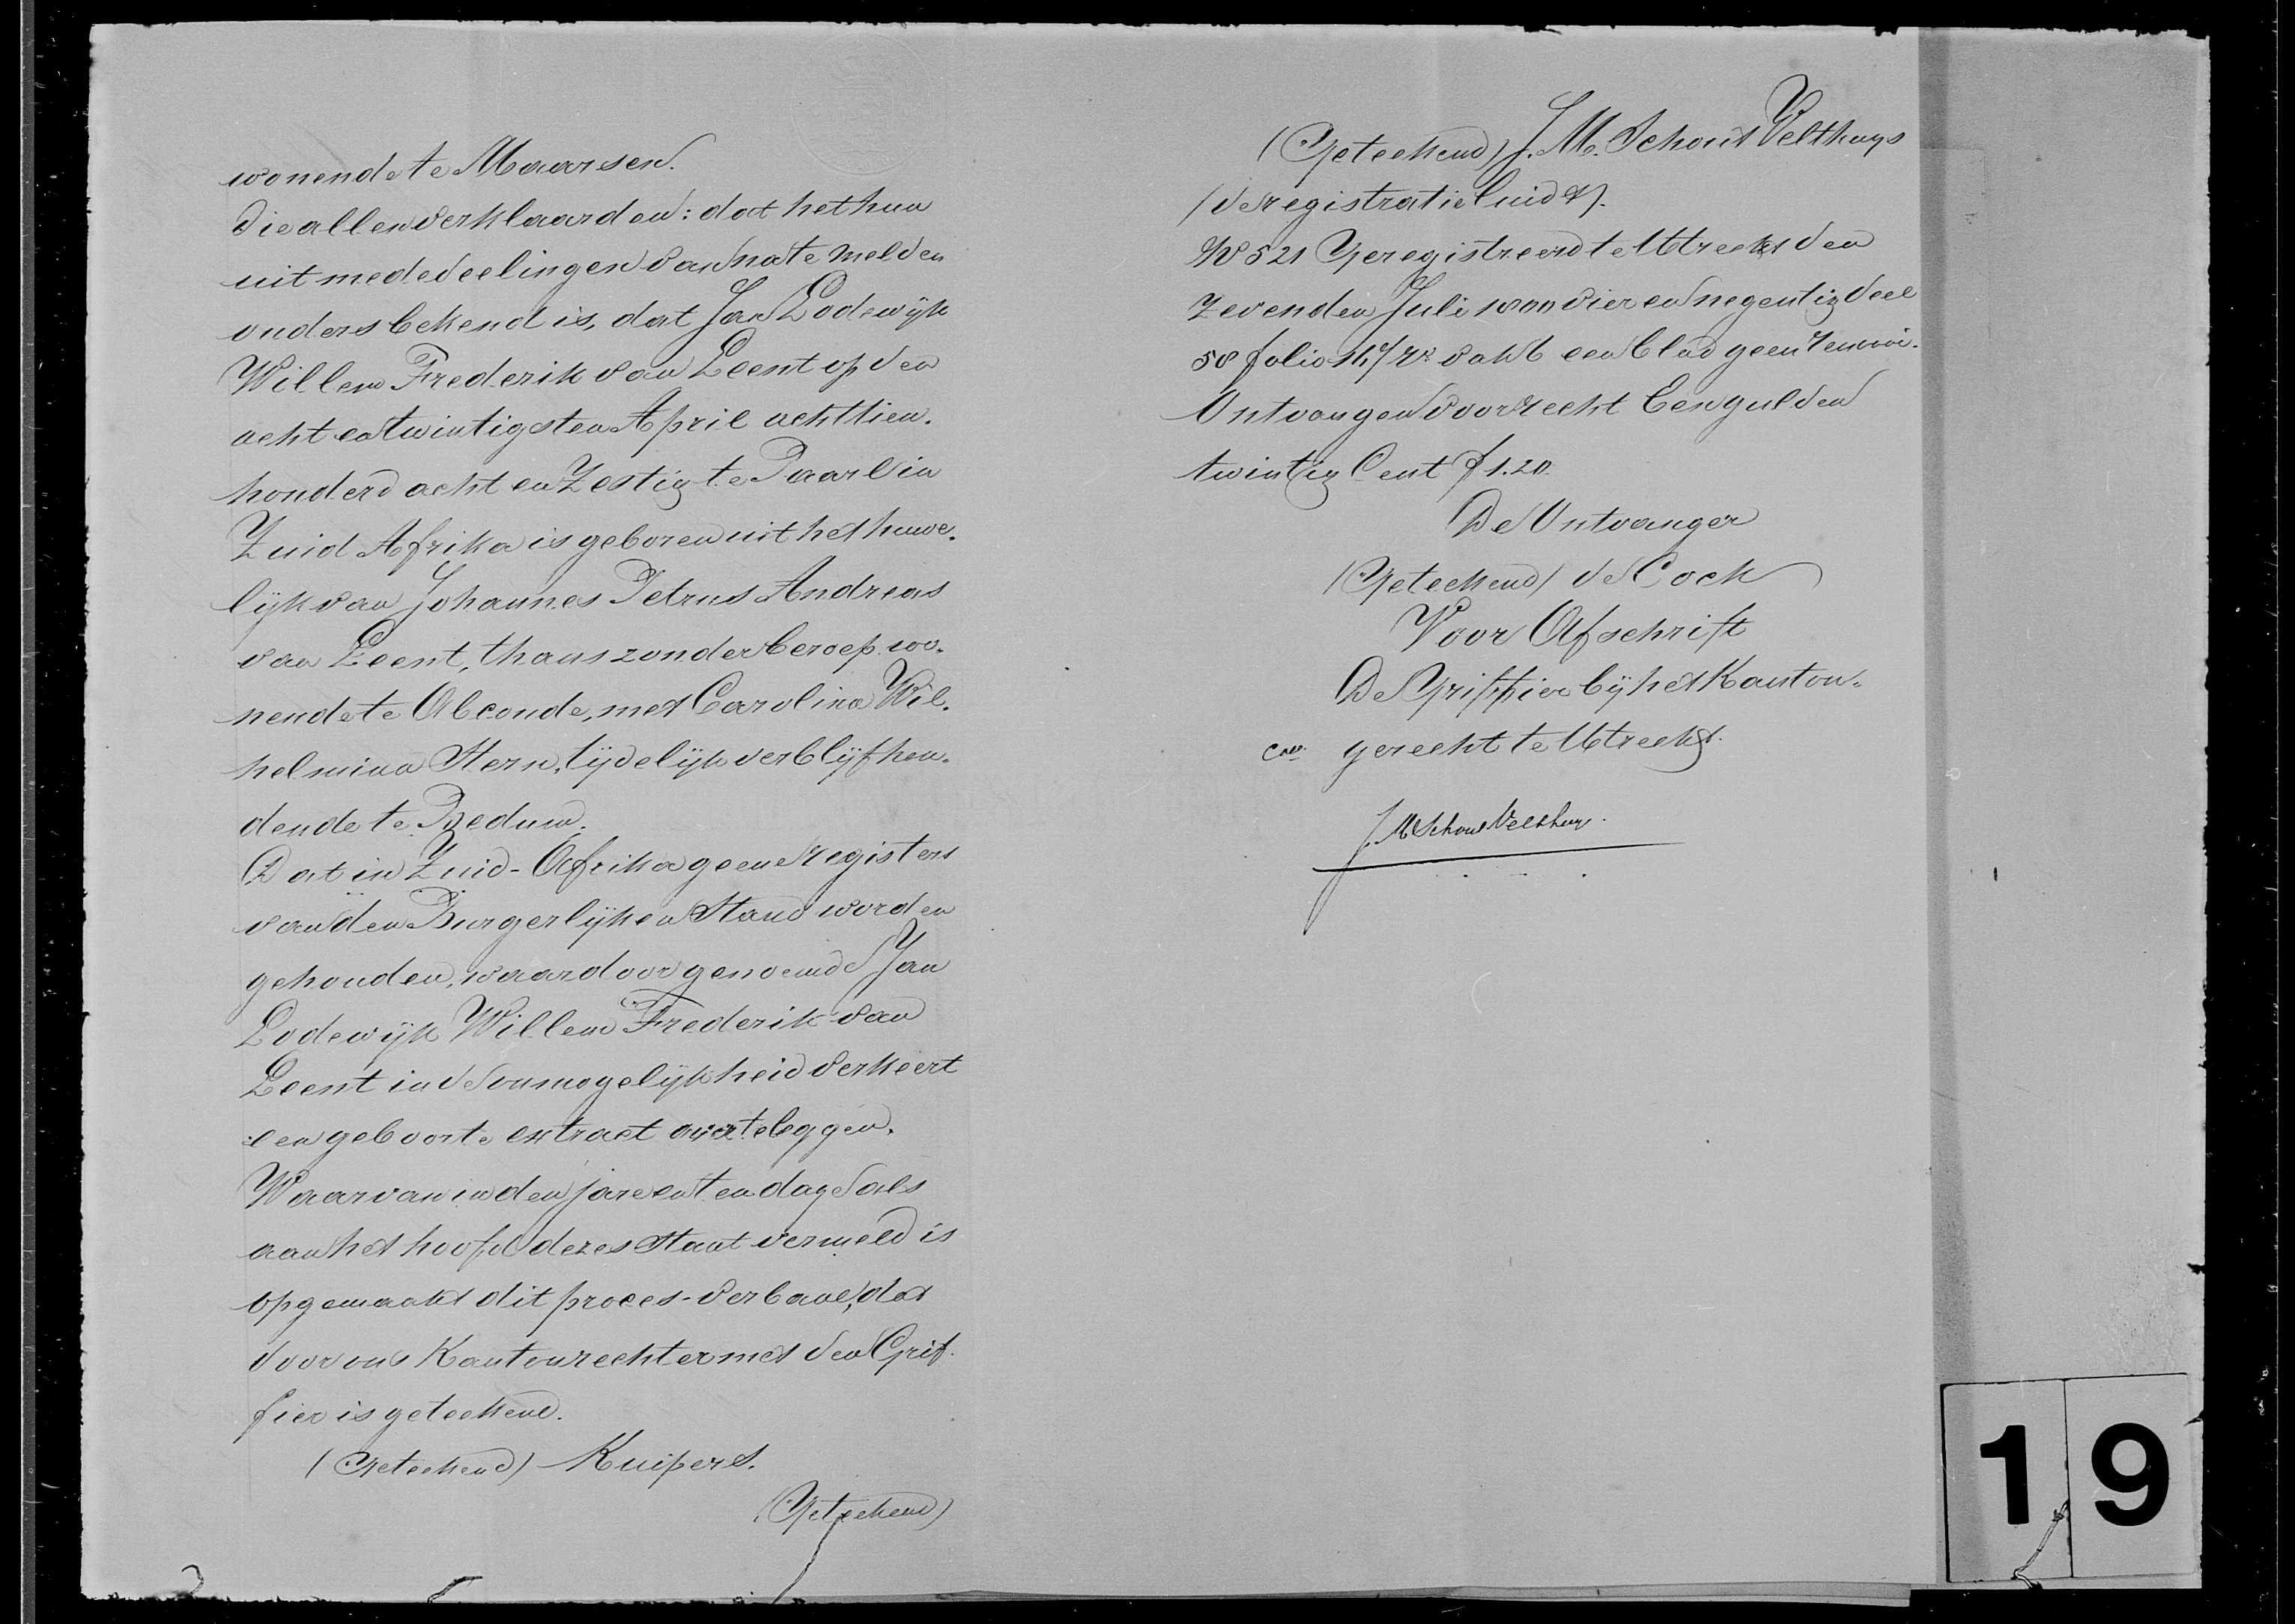 wonende te Maarsen.
Die allen verklaarden: dat het hun
uit mededeelingen van na te melden
ouders bekend is, dat Jan Lodewijk
Willem Frederik van Leent op den
acht en twintigsten April achttien-
honderd acht en Zestig te Paarl in
Zuid Afrika is geboren uit het huwe-
lijk van Johannes Petrus Andreas
van Leent, thans zonder beroep wo-
nende te Abcoude, met Carolina Wil-
helmina Stern, tijdelijk verblijf hou-
dende te Bedum.
Dat in Zuid-Afrika geene registers
van den Burgerlijken Stand worden
gehouden, waardoor genoemde Jan
Lodewijk Willem Frederik van
Leent in de onmogelijkheid verkeert
een geboorte extract over te leggen.
Waarvan in den jare en ten dage als
aan het hoofd dezes staat vermeld is
opgemaakt dit proces-verbaal, dat
door ons Kantonrechter met den Grif-
fier is geteekend.
(Geteekend) Kuipers.
(Geteekend)
(Geteekend) J. M. Schout Velthuys
(de registratie luidt).
No 521 Geregistreerd te Utrecht den
zevenden Juli 1800 vier en negentig deel
58 folio 11 / Ro vak 6 een blad geen renvoi.
Ontvangen voor recht Een gulden
twintig Cent f 1.20
De Ontvanger
(Geteekend) de Cock
Voor Afschrift
De Griffier bij het Kanton-
gerecht te Utrecht.
J. M Schout Velthuys.
19